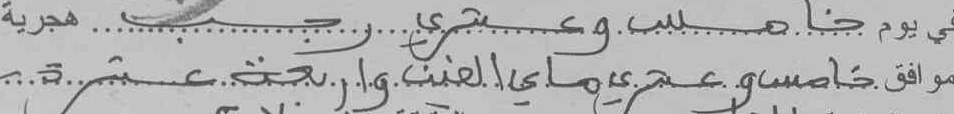 في يوم خامس وعشري رجب هجرية
موافق خامس وعشري ماي الفين واربعة عشرة